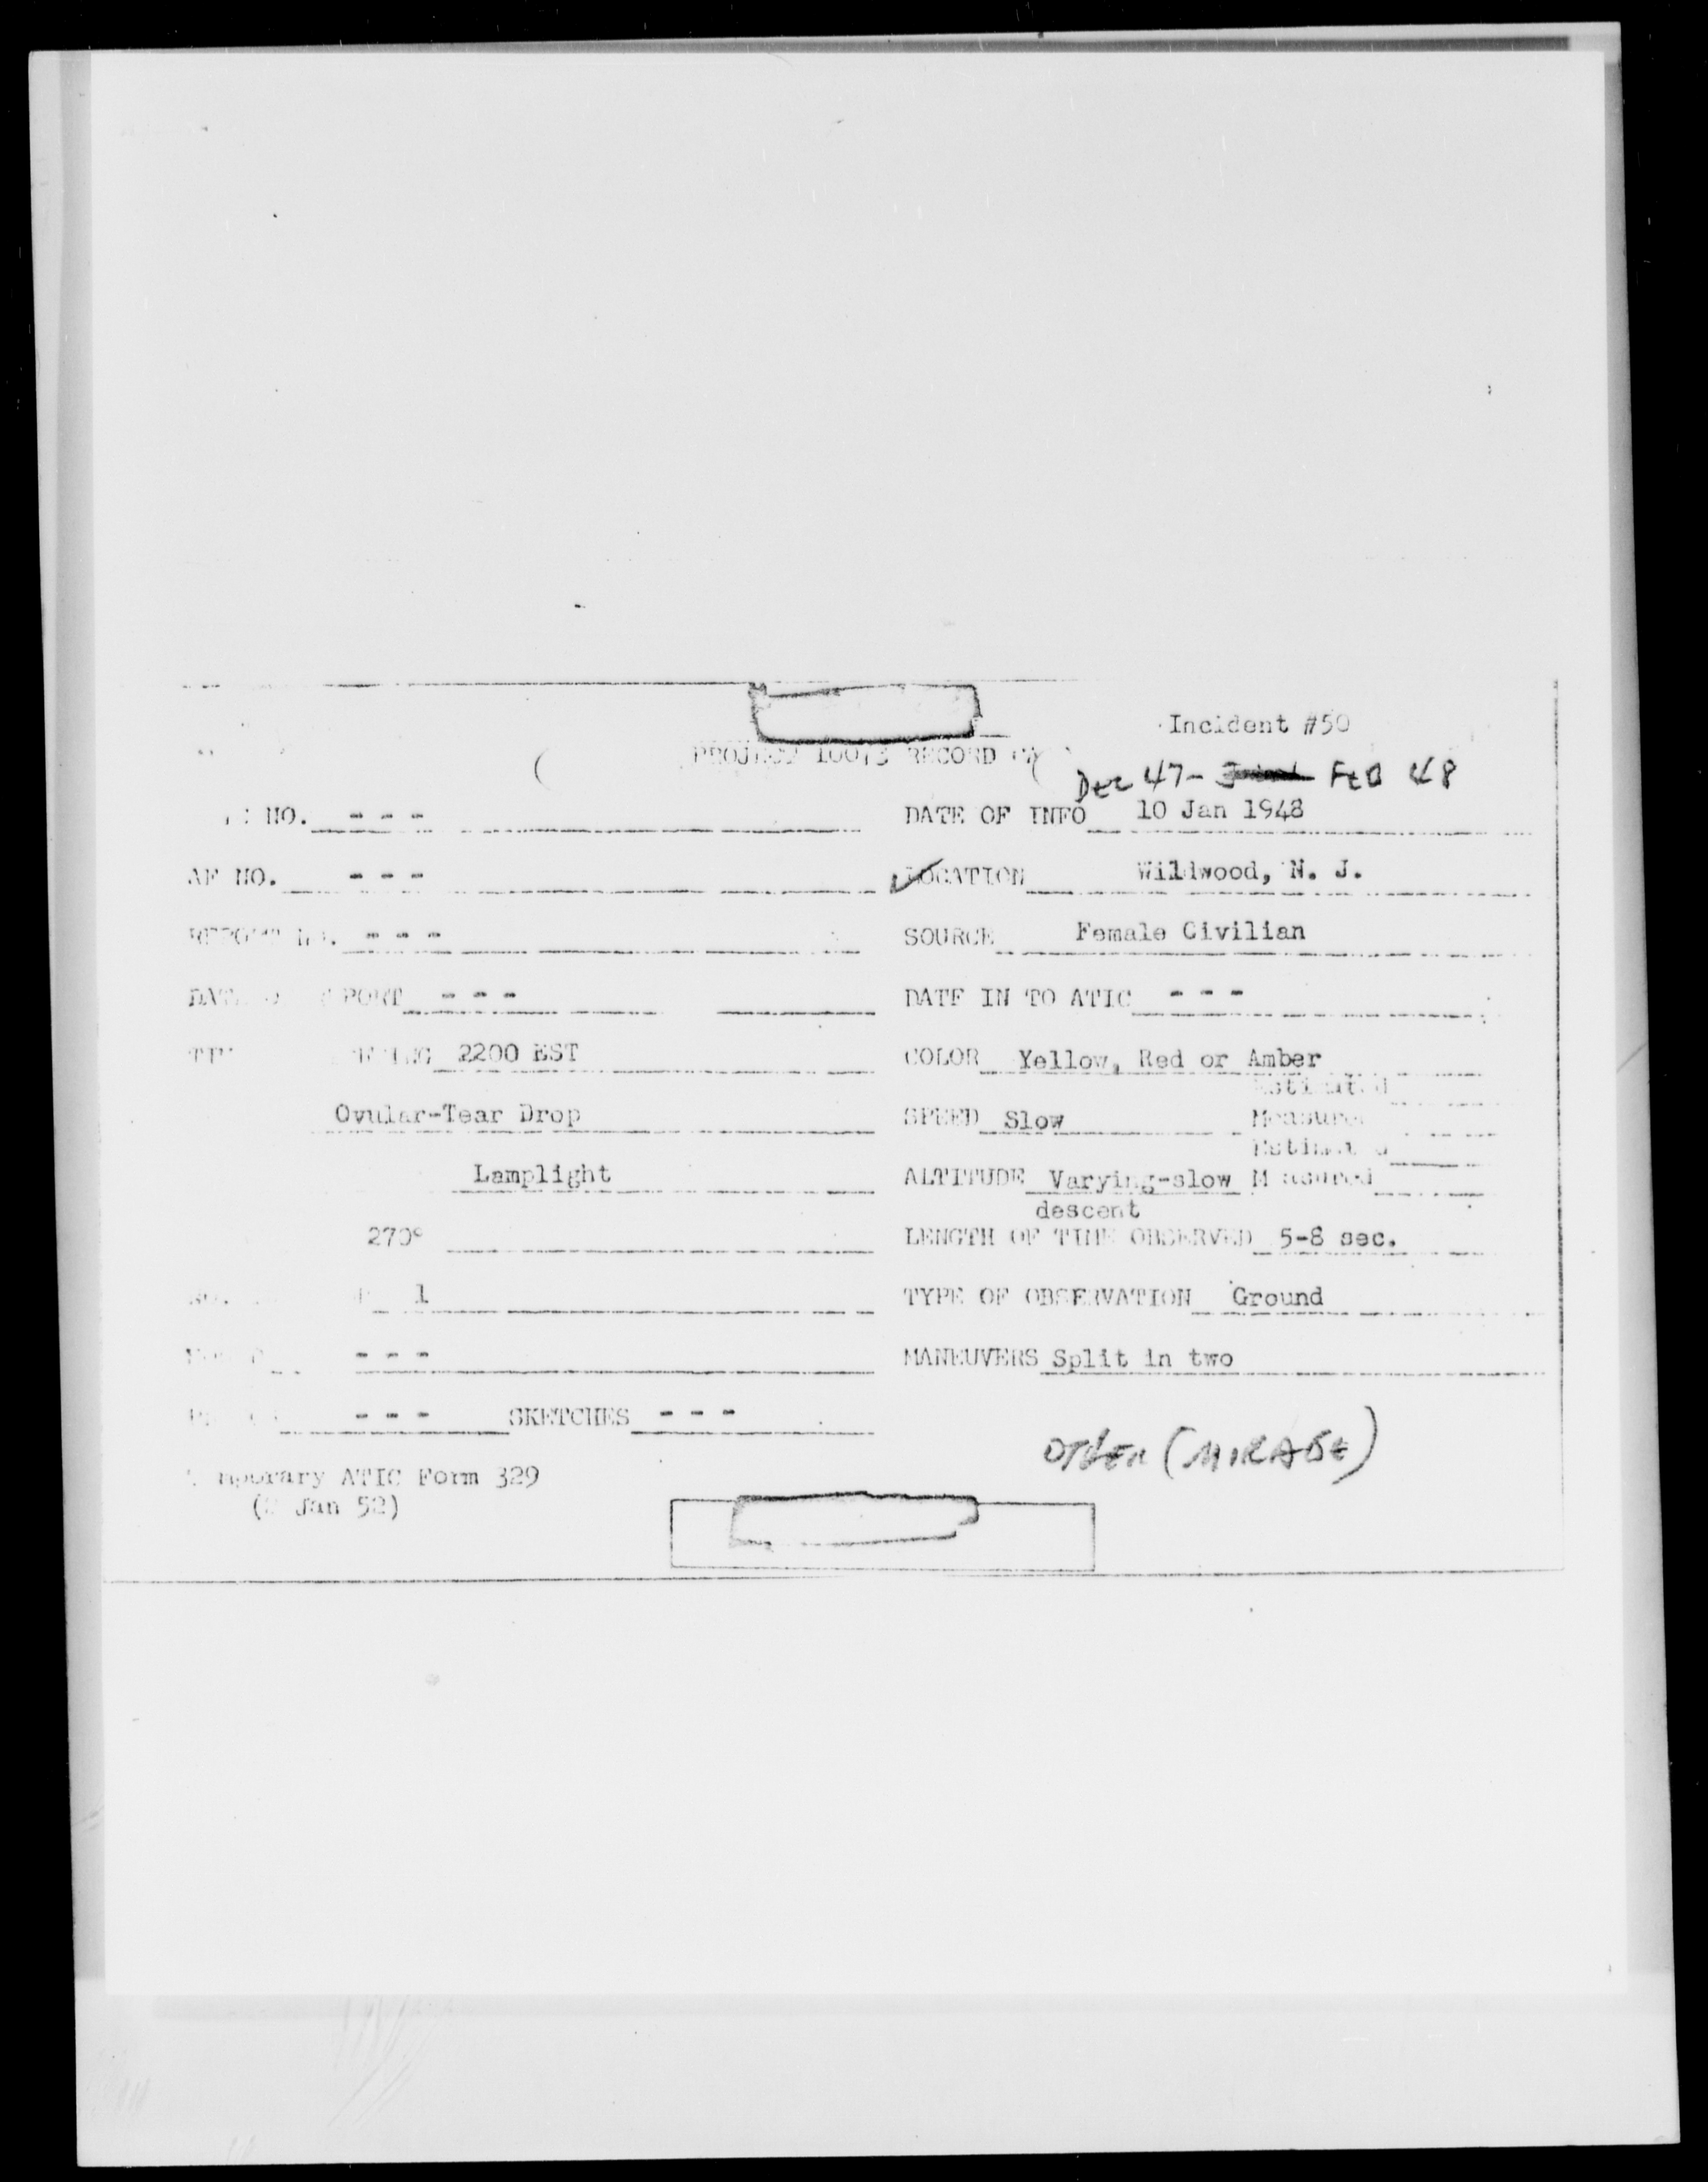 Incident #50
PROJECT 10073 RECORD
Dec 47- Feb 48
NO. - - -
DATE OF INFO 10 Jan 1948
AF NO. - - -
LOCATION Wildwood, N. J.
REPORT NO. - - -
SOURCE Female Civilian
PORT - - -
DATE IN TO ATIC - - -
2200 EST
COLOR Yellow, Red or Amber
Estimated
Ovular-Tear Drop
SPEED Slow Measured
Estimated
Lamplight
ALTITUDE Varying-slow Measured
descent
270°
LENGTH OF TIME OBSERVED 5-8 sec.
1
TYPE OF OBSERVATION Ground
- - -
MANEUVERS Split in two
- - - SKETCHES - - -
OTHER (MIRAGE)
Temporary ATIC Form 329
Jan 52)